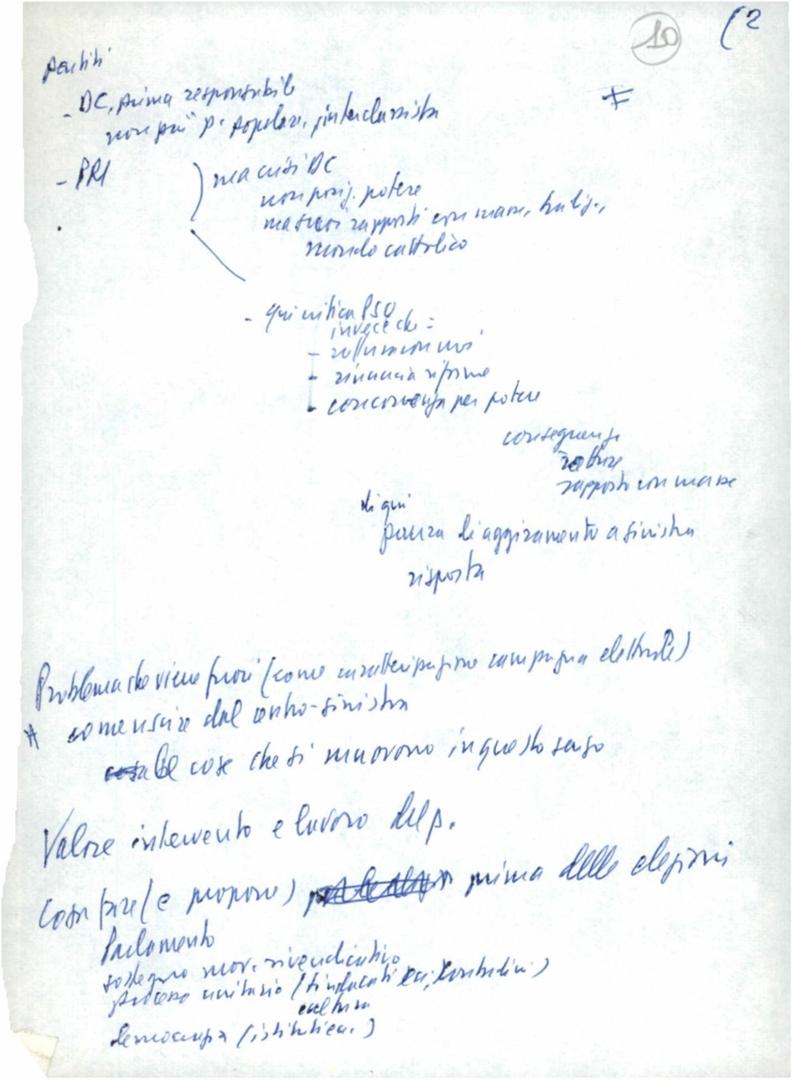 10
(2
partiti
- DC, prima responsabile
non più p. popolare, interclassista
- PRI
ma crisi DC
non posiz. potere
ma suoi rapporti con masse,
mondo cattolico
- qui critica PSU
invece che:
- 
- rinuncia riforme
- concorrenza per potere
conseguenze
rapporti con masse
di qui
paura di aggiramento a sinistra
risposta
Problema che viene fuori (come caratterizzazione campagna elettorale)
come uscire dal centro-sinistra
cose che si muovono in questo senso
Valore intervento e lavoro del p.
Cosa fare (e proporre) prima delle elezioni
Parlamento
sostegno mov. rivendicativo
processo unitario (sindacati
cultura
democrazia